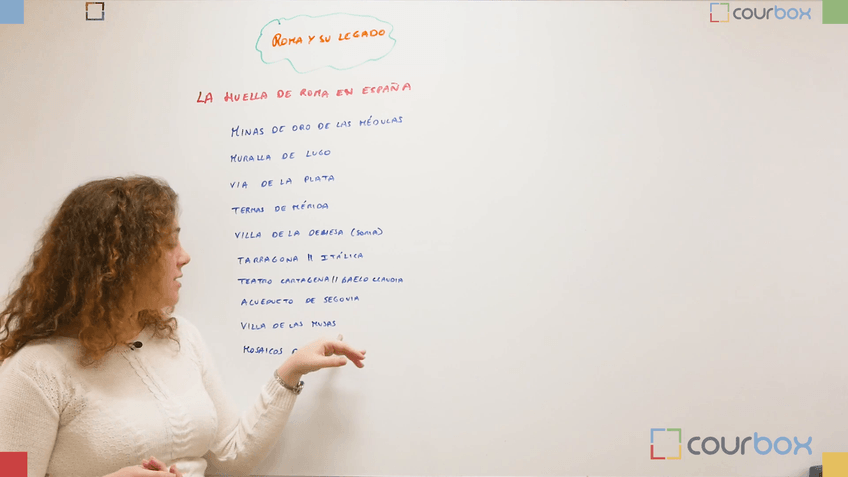 courbox
ROMA Y SU LEGADO
LA HUELLA DE ROMA EN ESPAÑA
MINAS DE ORO DE LAS MÉDULAS
MURALLA DE LUGO
VIA DE LA PLATA
TERMAS DE MÉRIDA
VILLA DE LA DEHESA (SORIA)
TARRAGONA // ITÁLICA
TEATRO CARTAGENA // BAELO CLAUDIA
ACUEDUCTO DE SEGOVIA
VILLA DE LAS MUSAS
MOSAICOS
courbox